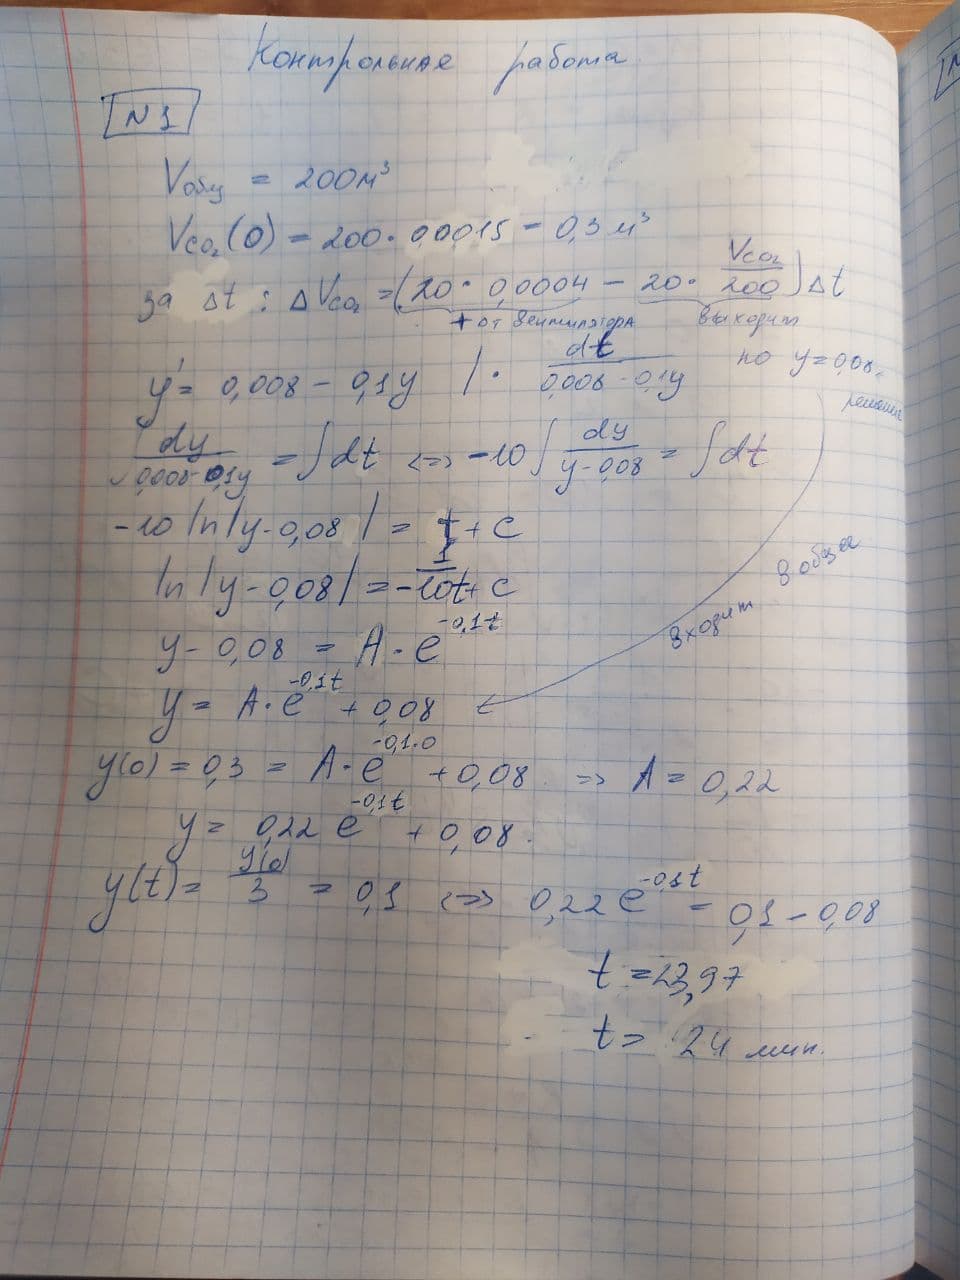 Контрольная работа
N 1
Vобщ = 200м³
Vco₂(0) = 200·0,00015 = 0,3 м³
за Δt : ΔVco₂ = (20·0,0004 − 20·Vco₂/200)Δt
+ от вентилятора выходит
y' = 0,008 − 0,1y |· dt/0,008 − 0,1y но y=0,08 решение
∫dy/0,008−0,1y = ∫dt <=> −10∫dy/y−0,08 = ∫dt
−10 ln|y−0,08| = t + c
ln|y−0,08| = −1/10t + c
y − 0,08 = A·e^−0,1t
входит в общее
y = A·e^−0,1t + 0,08
y(0) = 0,3 = A·e^−0,1·0 + 0,08 => A = 0,22
y = 0,22 e^−0,1t + 0,08.
y(t) = y(0)/3 = 0,1 <=> 0,22 e^−0,1t = 0,1 − 0,08
t = 23,97
t = 24 мин.
N